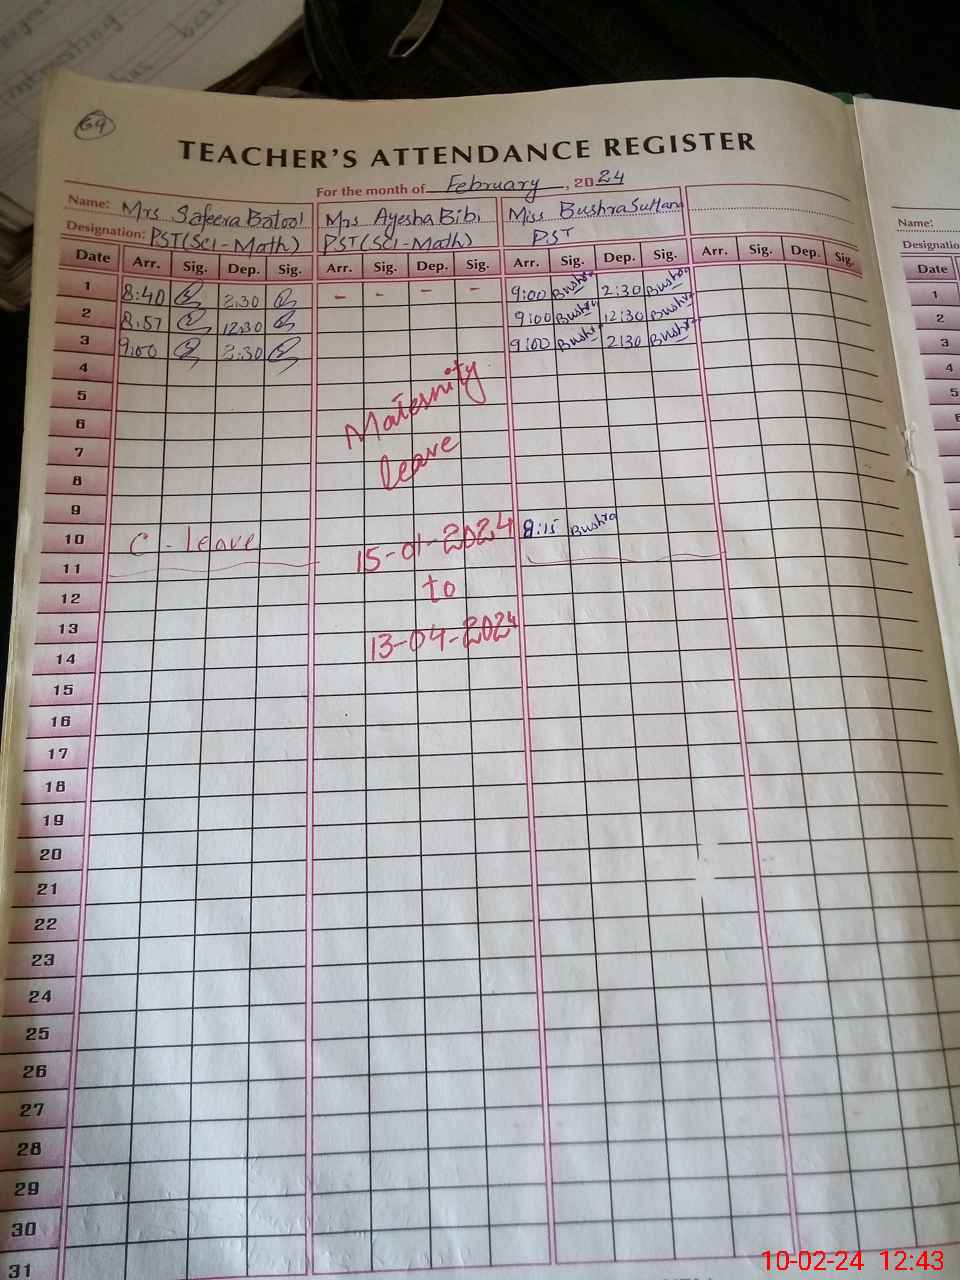 69
TEACHER'S ATTENDANCE REGISTER
For the month of February, 2024
Name: Mrs Safeera Batool Mrs Ayesha Bibi Miss Bushra Sultana
Designation: PST(Sci-Math) PST(Sci-Math) PST
Date Arr. Sig. Dep. Sig. Arr. Sig. Dep. Sig. Arr. Sig. Dep. Sig. Arr. Sig. Dep. Sig.
1 8:40 2:30 - - - - 9:00 Bushra 2:30 Bushra
2 8:57 12:30 9:00 Bushra 12:30 Bushra
3 9:00 2:30 9:00 Bushra 2:30 Bushra
4
5
6 Maternity
7
8 leave
9
10 C - leave 15-01-2024 8:15 Bushra
11
12 to
13
14 13-04-2024
15
16
17
18
19
20
21
22
23
24
25
26
27
28
29
30
31
Name:
Designatio
Date
1
2
3
4
5
10-02-24 12:43